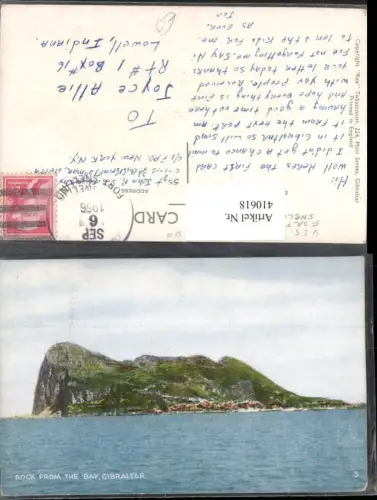 Copyright "Rex" Tobacconist, 224, Main Street, Gibraltar
Printed in England
Hi:
Well Heres the First card
I didn't get a chance to mail
it in Gibraltar so will send
it from the next port. Am
having a good time here
and hope every thing is Fine
with you people. Received
your letter today so thanks
For not Forgetting me. Say Hi
To Len & the Kids For me.
As Ever.
CARD
ADDRESS
SEP
6
1956
John R.
New York N.Y.
TO
Joyce Allie
Rt # 1 Box #18
Lowell, Indiana
Artikel Nr.
410618
ROCK FROM THE BAY, GIBRALTAR
3